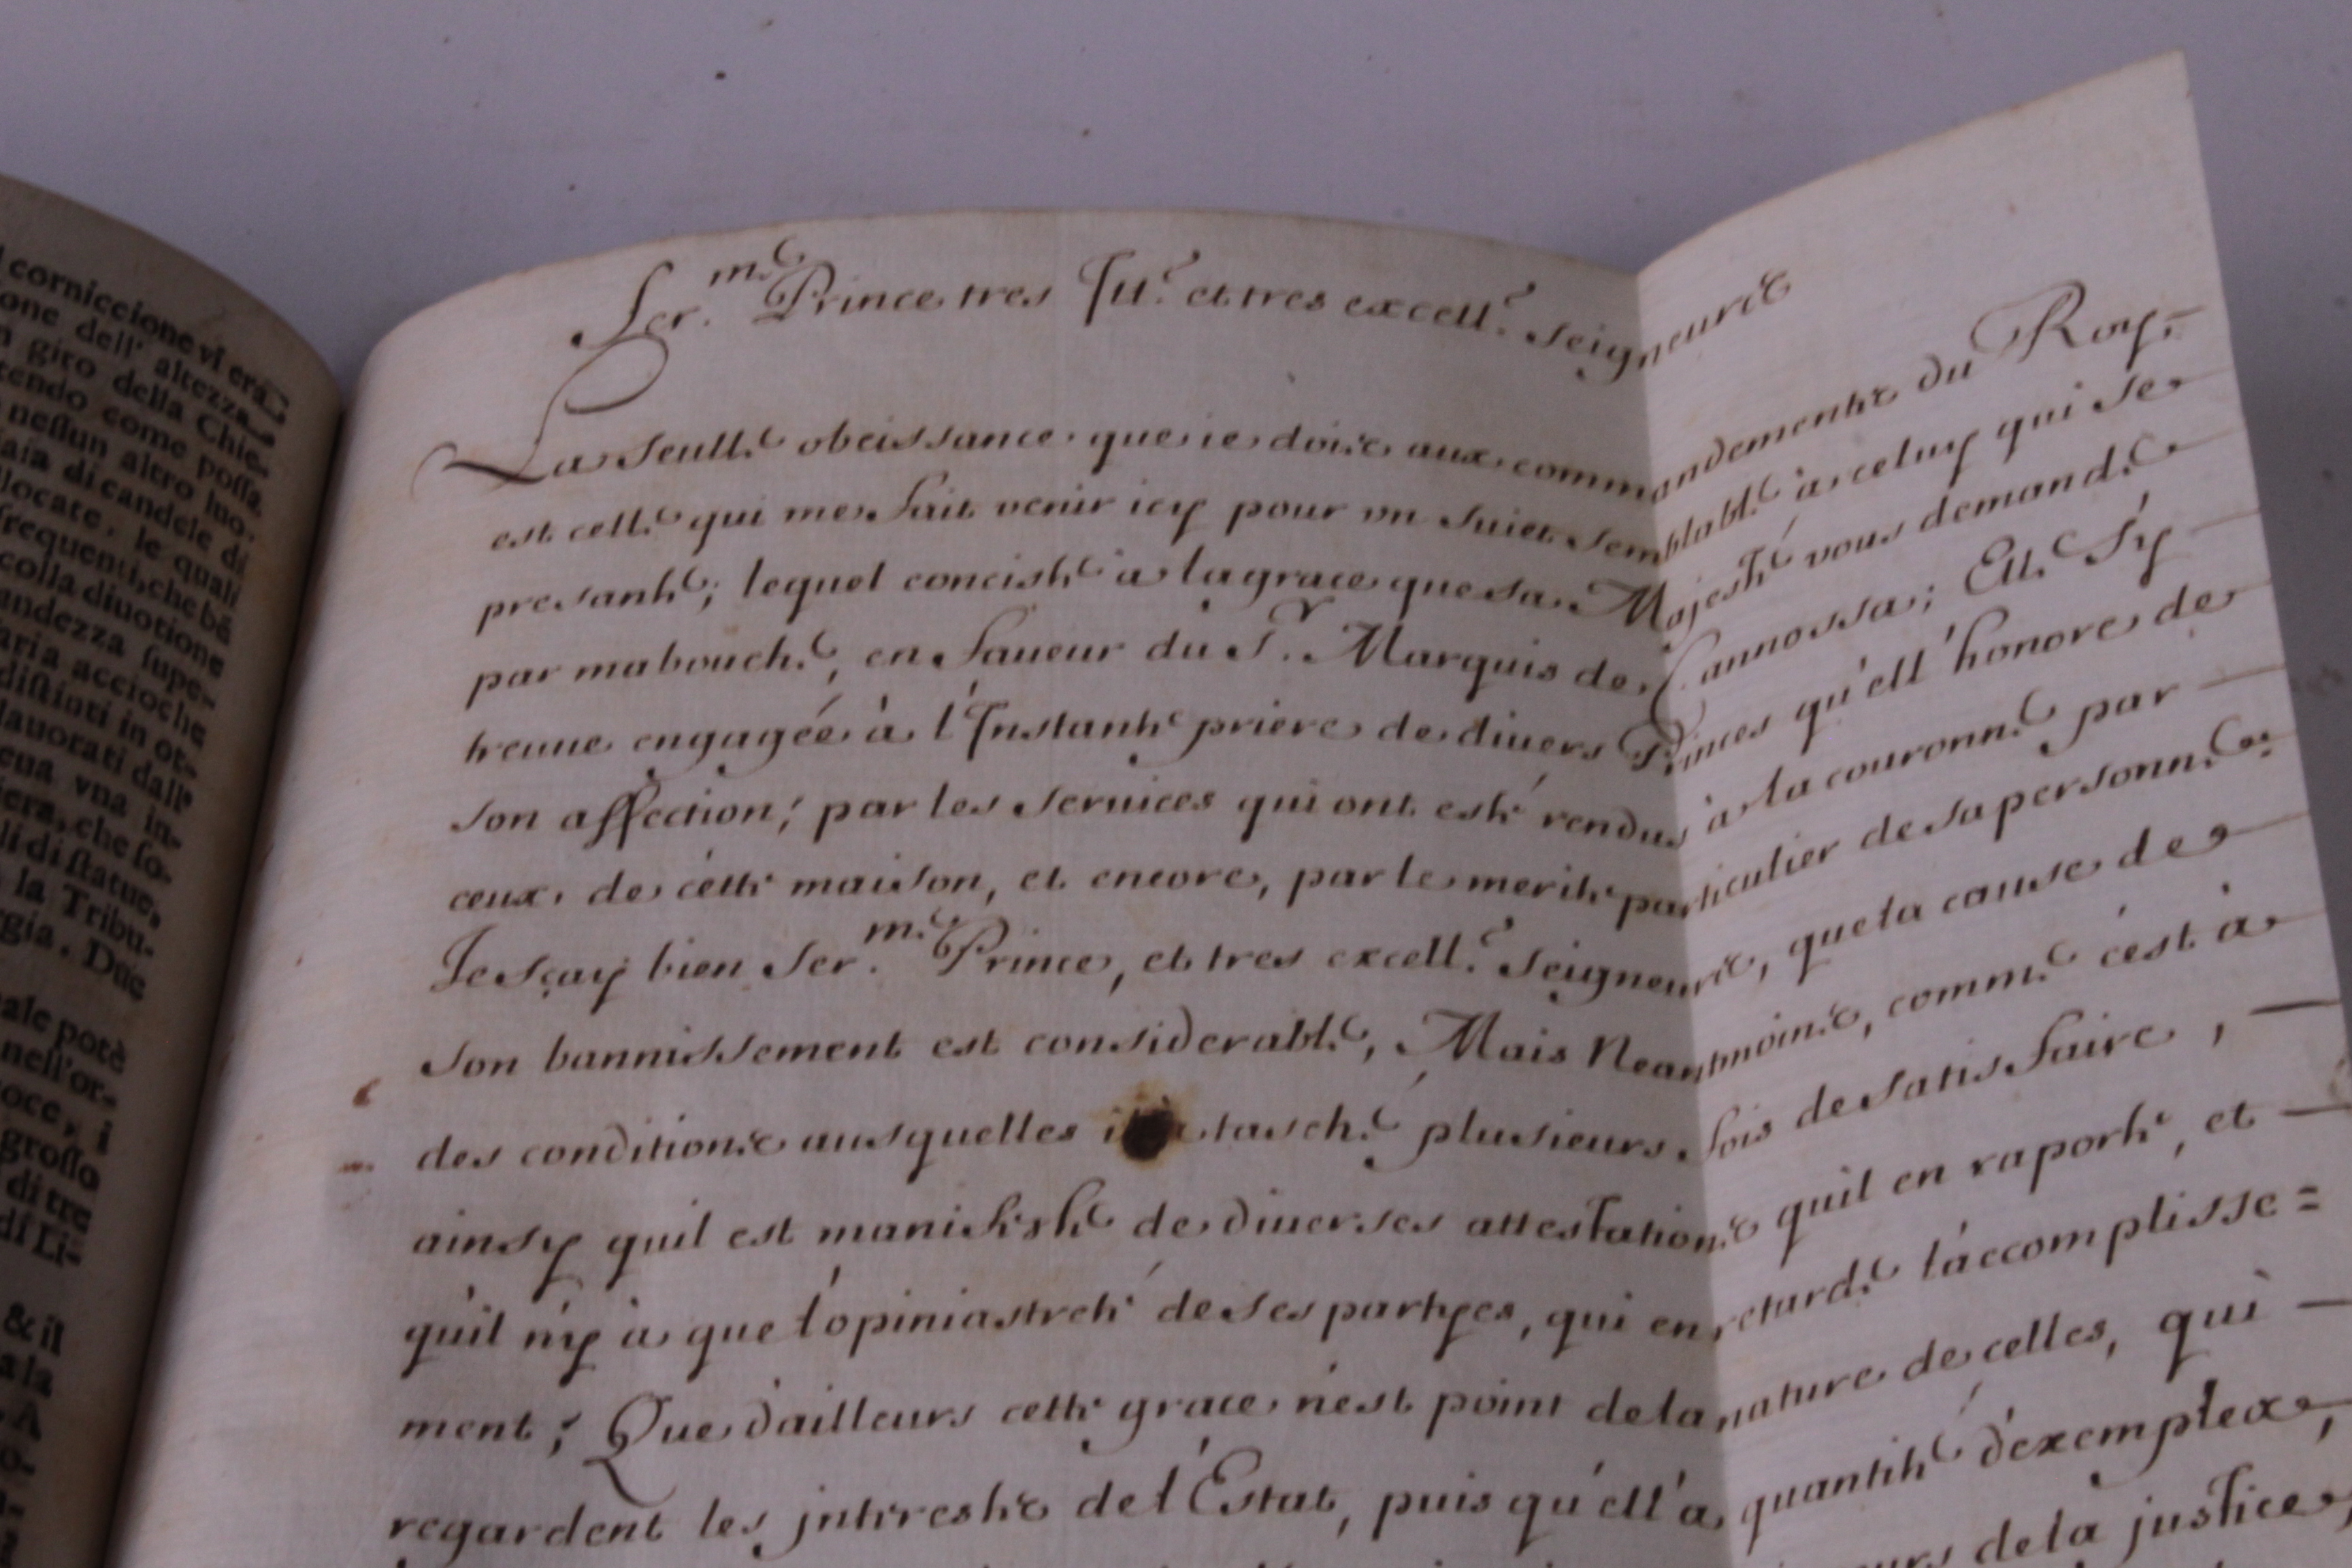 corniccione vi era
one dell' altezza
giro della Chie-
tendo come possa
nessun altro luo-
aia di candele di
locate, le quali
frequenti, che bē
colla diuotione
andezza supe-
aria accioche
distinti in or-
lauorati dall'
ena vna in-
iera, che so-
li di statue,
la Tribu-
gia. Due
ale potè
nell'or-
oce, i
grosso
di tre
di Li-
& il
a la
Ser.me Prince tres Ill.e et tres excell.e Seigneurie
La Seulle obeissance que ie dois aux commandements du Roy,
est celle qui me fait venir icy pour vn Suiet Semblable à celuy qui Se
presante; lequel conciste a la grace que sa Majesté vous demande
par ma bouche, en faueur du S.r Marquis de Cannossa; Elle S'y
treuue engagée à l'Instante priere de diuers Princes qu'ell' honore de
son affection; par les Seruices qui ont esté rendus à la couronne par
ceux de cétte maison, et encore, par le merite particulier de sa personne.
Je sçay bien Ser.me Prince, et tres excell.e Seigneurie, que la cause de
son bannissement est considerable, Mais Neantmoins, comme c'est à
des conditions ausquelles tasché plusieurs fois de Satisfaire,
ainsy quil est manifeste de diuerses attestations quil en raporte, et
qu'il n'y à que l'opiniastreté de Ses partyes, qui en retarde l'accomplisse=
ment; Que d'ailleurs cette grace n'est point de la nature de celles, qui
regardent les jnterests de l'Éstat, puis qu'ell'a quantité d'exemples,
de la justice,